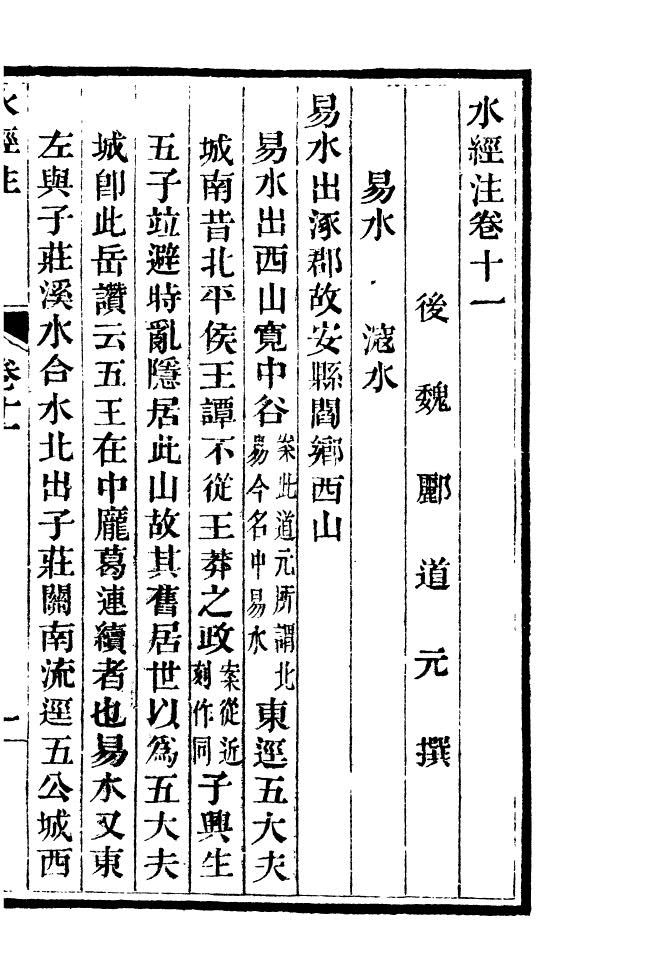 水經注卷十一
後魏酈道元撰
易水　滱水
易水出涿郡故安縣閻鄉西山
易水出西山寬中谷案此道元所謂北易今名中易水東逕五大夫
城南昔北平侯王譚不從王莽之政案從近刻作同子興生
五子竝避時亂隱居此山故其舊居世以爲五大夫
城卽此岳讚云五王在中龐葛連續者也易水又東
左與子莊溪水合水北出子莊關南流逕五公城西
水經注
卷十一
一